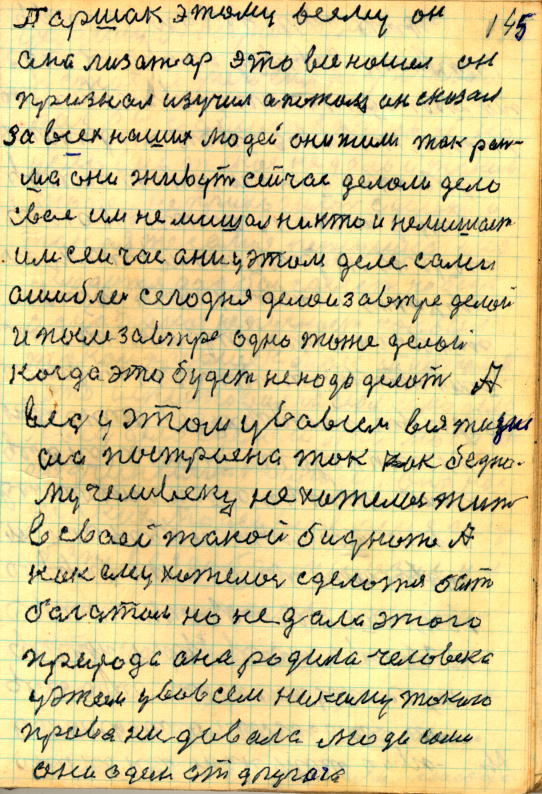 145
Паршак этому всему он
анализатар это вше нашел он
признал изучил а потом он сказал
за всех наших людей они жили так рань-
ша они живут сейчас делали дело
свае им не мишал никто и не мишает
им сейчас ани у этом деле сами
ошиблеь сегодня делой завтре делой
и после завтре одно тоже делой
когда это будет ненадо делать А
вед у этом у вовсем вся жизнь
она построена так как бедно-
му человеку не хотелоь жить
в сваей такой бидноте А
как ему хотелоь сделатя быть
багатым но не дала этого
природа она родила человека
у этом у вовсем никому такого
права ни довала люди сами
они один от другога